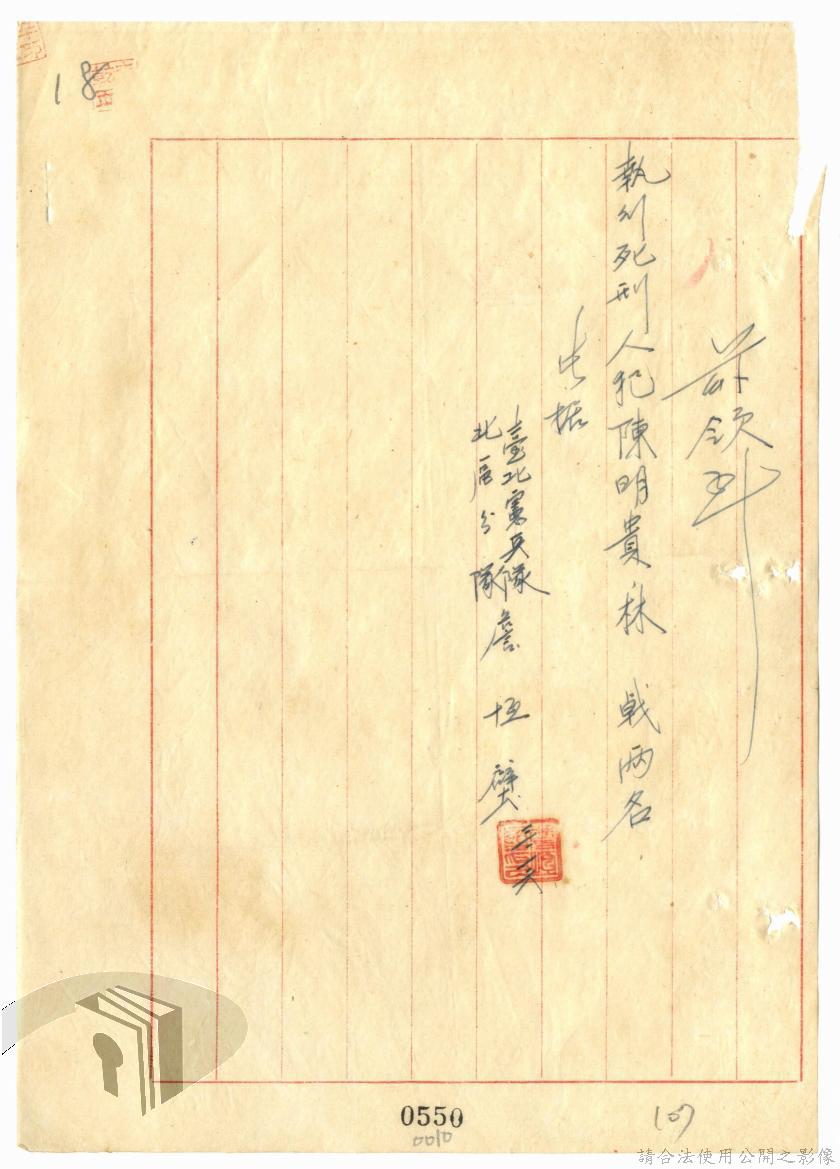 18
茲領到
執行死刑人犯陳明貴林 戟兩名
此据
臺北憲兵隊
北區分隊
詹 恒 璧
0550
0010
請合法使用公開之影像